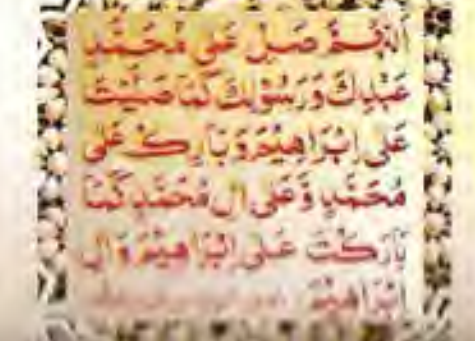 اَللّٰهُمَّ صَلِّ عَلٰى مُحَمَّدٍ
عَبْدِكَ وَرَسُوْلِكَ كَمَا صَلَّيْتَ
عَلٰى اِبْرَاهِيْمَ وَبَارِكْ عَلٰى
مُحَمَّدٍ وَّعَلٰى اٰلِ مُحَمَّدٍ كَمَا
بَارَكْتَ عَلٰى اِبْرَاهِيْمَ وَاٰلِ
اِبْرَاهِيْمَ